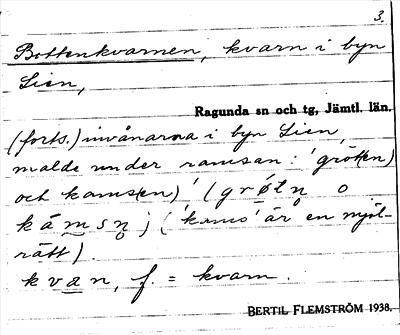 3.
Bottenkvarnen, kvarn i byn
Lien,
Ragunda sn och tg, Jämtl. län.
(forts.) invånarna i byn Lien,
malde under ramsan: 'gröt(en)
och kams(en)' (grøtn̥ o
kämsn̥; ('kams' är en mjöl-
rätt).
kvan, f. = kvarn.
BERTIL FLEMSTRÖM 1938.